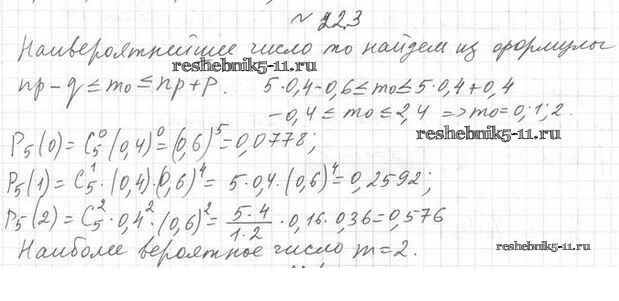 № 22.3
Наивероятнейшее число mo найдем из формулы
reshebnik5-11.ru
np-q≤mo≤np+p. 5·0,4-0,6≤mo≤5·0,4+0,4
-0,4≤mo≤2,4 =>mo=0;1;2.
reshebnik5-11.ru
P₅(0)=C₅⁰(0,4)⁰=(0,6)⁵=0,0778;
P₅(1)=C₅¹·(0,4)·(0,6)⁴=5·0,4·(0,6)⁴=0,2592;
P₅(2)=C₅²·0,4²·(0,6)²=5·4/1·2·0,16·0,36=0,576
Наиболее вероятное число m=2.
reshebnik5-11.ru